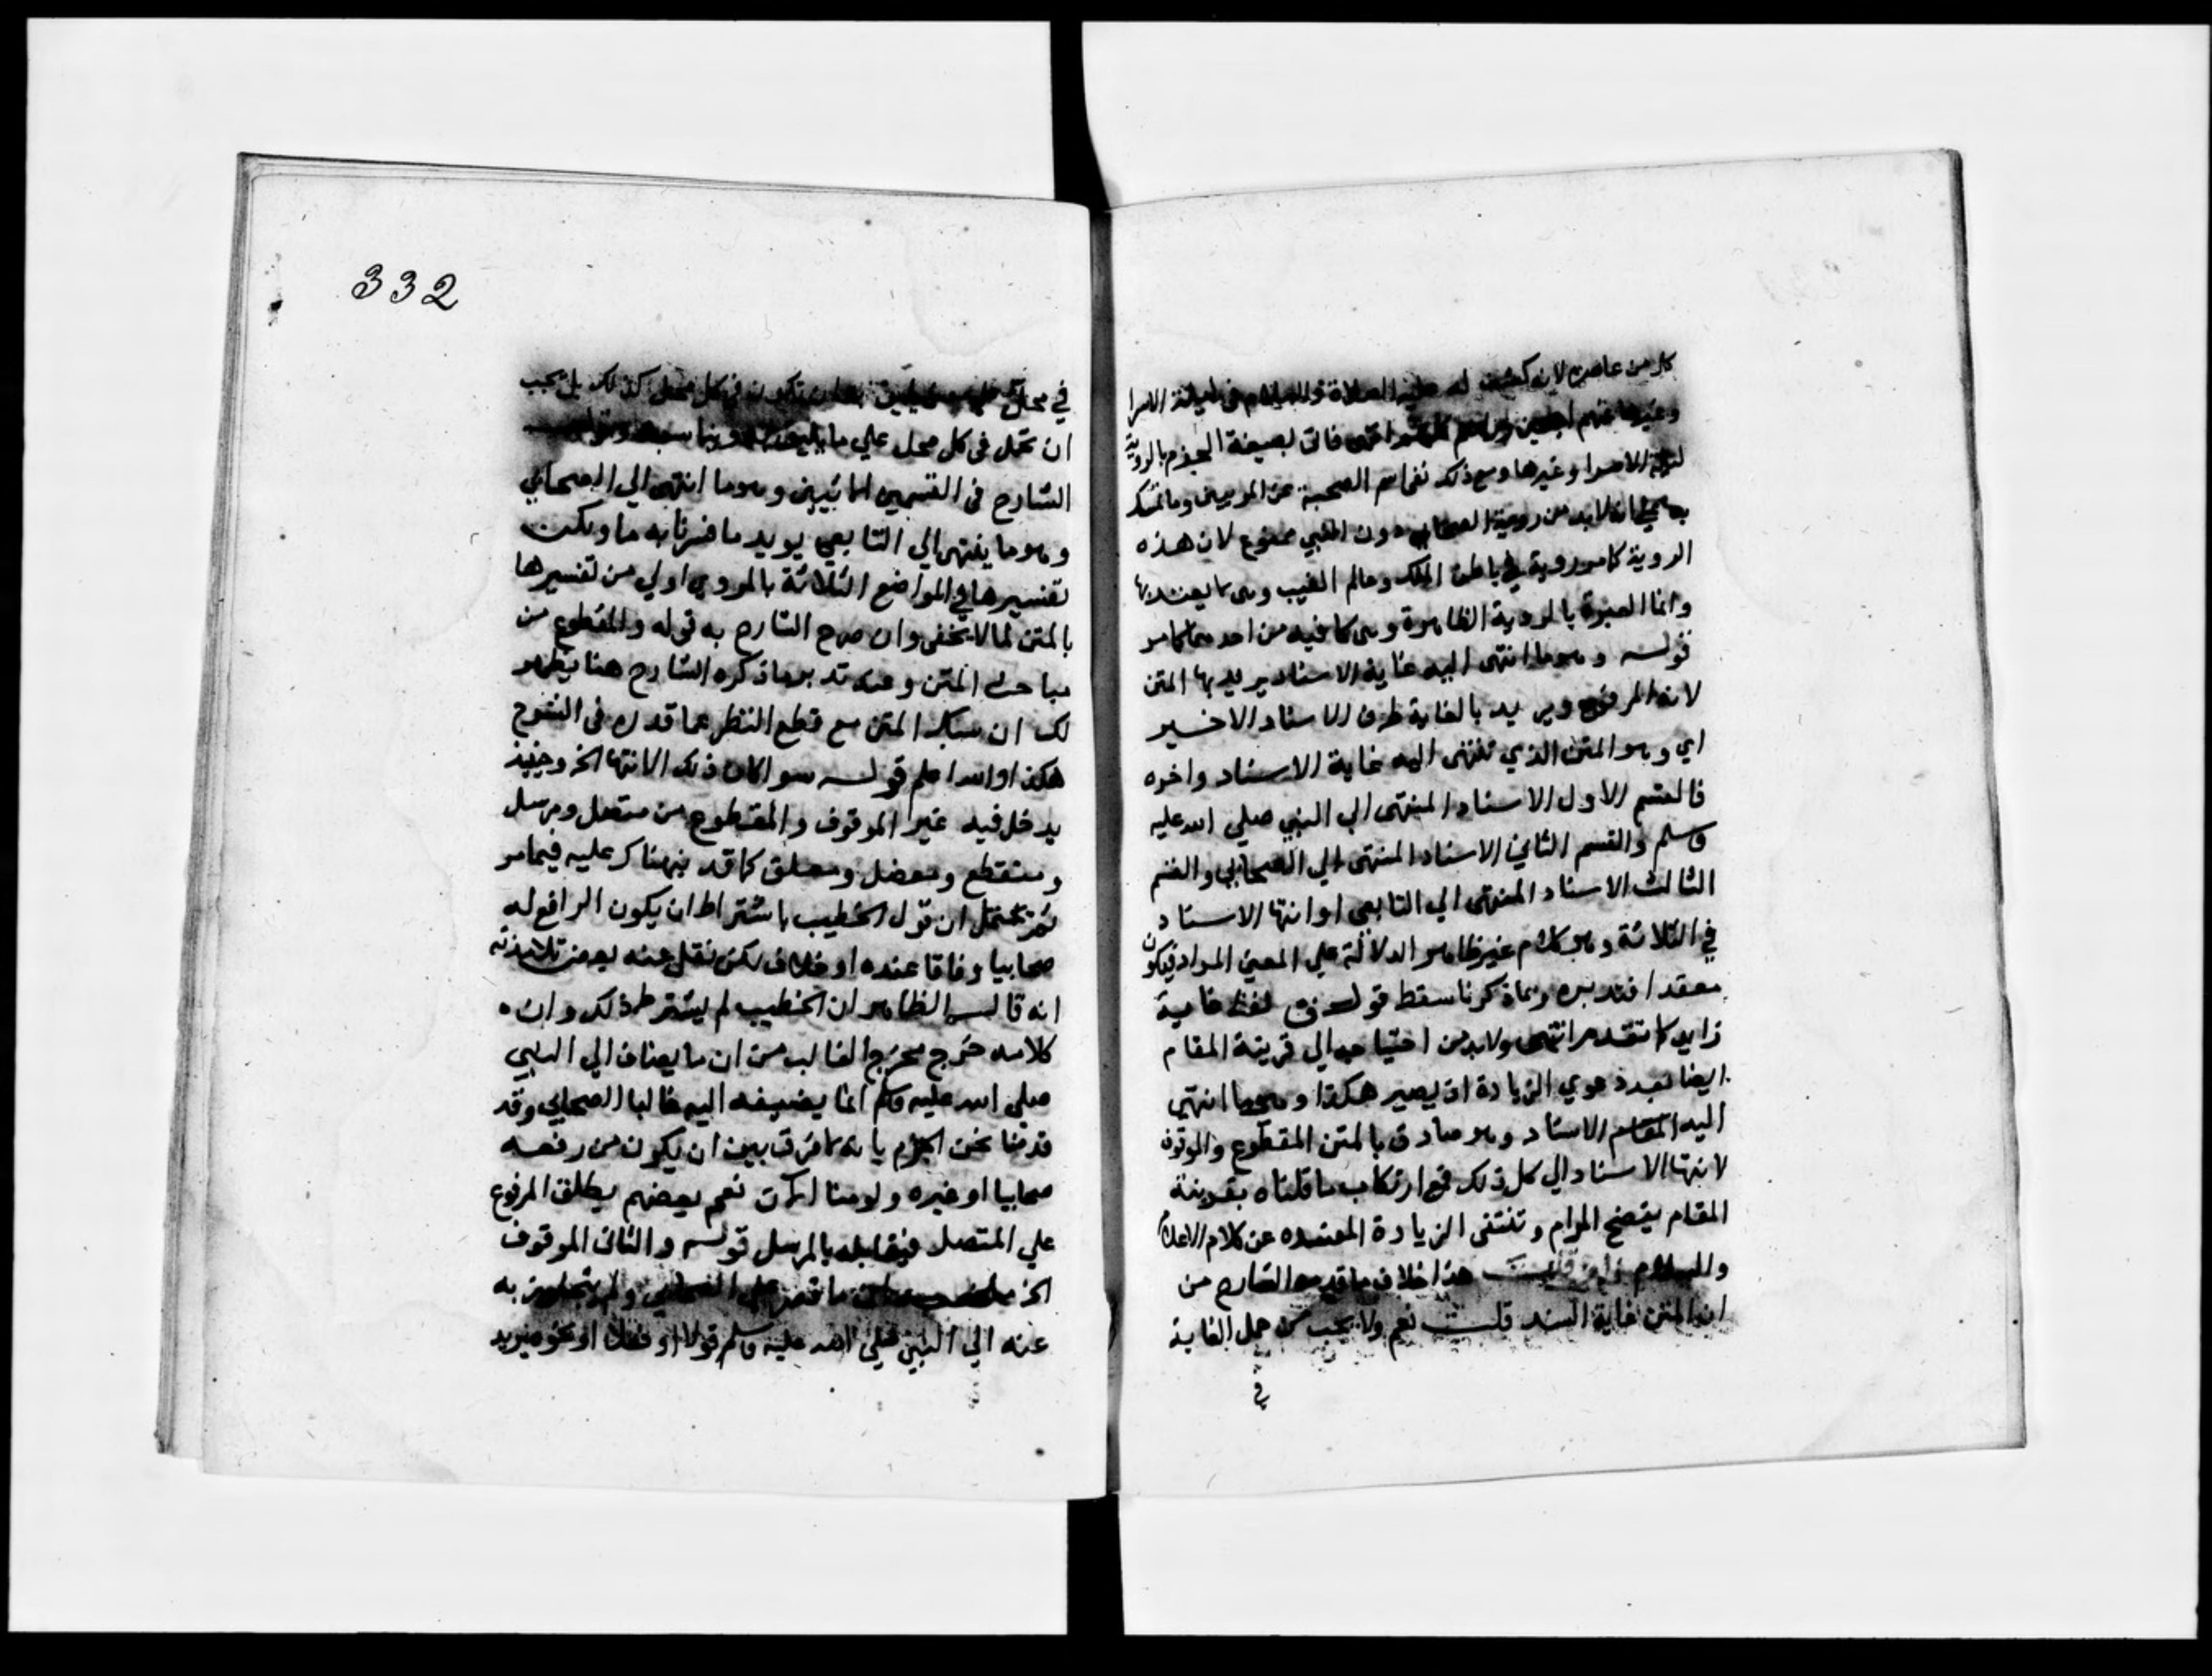 كل من عاصره لانه كشف له عليه الصلاة والسلام في ليلة الاسرا
وغيرها عنهم اجمعين انتهى فاتى بصيغة الجزم بالروية
ليلة الاسرا وغيرها ومع ذلك نفا اسم الصحبة عن المربيين وما تمسك
به من انه لابد من روية الصحابي دون النبي ممنوع لان هذه
الروية كامر روية في باطن الملك وعالم الغيب ولا يعتد بها
وانما العبرة بالروية الظاهرة وهي كافية من احدهما كامر
قوله وهوما انتهى اليه غاية الاسناد يريد بها المتن
لانه المرفوع ويريد بالغاية طرف الاسناد الاخير
اي وهو المتن الذي تنتهى اليه غاية الاسناد واخره
فالقسم الاول الاسناد المنتهى الى النبي صلي الله عليه
وسلم والقسم الثاني الاسناد المنتهى الي الصحابي والقسم
الثالث الاسناد المنتهى الي التابعي اوانتها الاسناد
في الثلاثة وهو كلام غير ظاهر الدلالة علي المعني المراد فيكون
معقدا فتدبره وبما ذكرنا سقط قول ق لفظ غاية
زايد كما تقدم انتهى ولابد من احتياجه الي قرينة المقام
ايضا بعد دعوي الزيادة اذ يصير هكذا وهوما انتهى
اليه الاسناد وهو صادق بالمتن المقطوع والموقوف
لانتها الاسناد الي كل ذلك فمع ارتكاب ما قلناه بقرينة
المقام يتضح المرام وتنتفى الزيادة المفسده عن كلام الاعلام
والسلام فان قلت هذا خلاف ما قدمه الشارح من
ان المتن غاية السند قلت نعم ولا يجب حمل الغاية
في
332
في محل على معنى يليق بها ان تكون في كل محل كذلك بل يجب
ان تحمل في كل محل علي ما يليق به
الشارح في القسمين الباقيين وهوما انتهى الي الصحابي
وهوما ينتهى الي التابعي يويد ما فسرنا به ما ويكن
تفسيرها في المواضع الثلاثة بالمروي اولي من تفسيرها
بالمتن لما لا يخفى وان صرح الشارح به قوله والمقطوع من
مباحث المتن وعند تدبر ما ذكره الشارح هنا يظهر
لك ان سبك المتن مع قطع النظر عما قدره في الشرح
هكذا والله اعلم قوله سوا كان ذلك الانتها الخ وحينئذ
يدخل فيه غير الموقوف والمقطوع من متصل ومرسل
ومنقطع ومعضل ومعلق كما قد نبهناك عليه فيما مر
ثم يحتمل ان قول الخطيب باشتراط ان يكون الرافع له
صحابيا وفاقا عنده او خلاف لكن نقل عنه بعض تلامذته
انه قال الظاهر ان الخطيب لم يشترط ذلك وان
كلامه خرج مخرج الغالب من ان ما يضاف الي النبي
صلي الله عليه وسلم انما يضيفه اليه غالبا الصحابي وقد
قدمنا نحن الجزم بانه لا فرق بين ان يكون من رفعه
صحابيا او غيره ولو منا الان نعم بعضهم يطلق المرفوع
علي المتصل فيقابله بالمرسل قوله والثاني الموقوف
الخ ما قصر علي الصحابي ولم يتجاوز به
عنه الي النبي صلي الله عليه وسلم قولا او فعلا او نحوه يريد